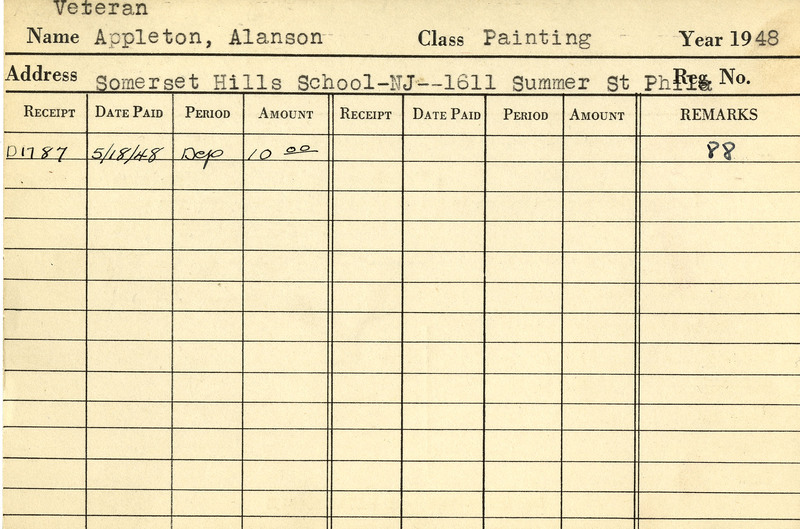 Veteran
Name Appleton, Alanson Class Painting Year 1948
Address Somerset Hills School-NJ--1611 Summer St Phila Reg. No.
RECEIPT DATE PAID PERIOD AMOUNT RECEIPT DATE PAID PERIOD AMOUNT REMARKS
D1787 5/18/48 Dep 10 00 88